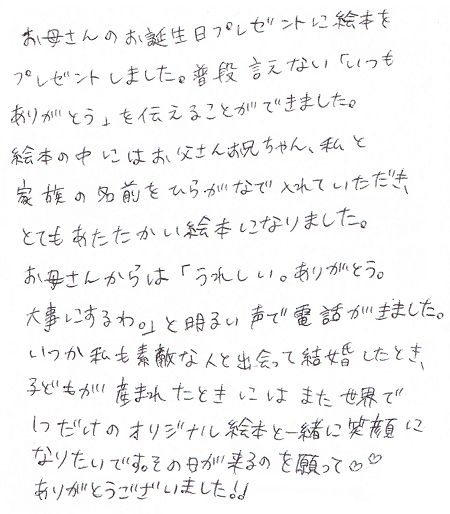 お母さんのお誕生日プレゼントに絵本を
プレゼントしました。普段言えない「いつも
ありがとう」を伝えることができました。
絵本の中にはお父さんお兄ちゃん、私と
家族の名前をひらがなで入れていただき、
とてもあたたかい絵本になりました。
お母さんからは「うれしい。ありがとう。
大事にするわ。」と明るい声で電話がきました。
いつか私も素敵な人と出会って結婚したとき、
子どもが産まれたときにはまた世界で
1つだけのオリジナル絵本と一緒に笑顔に
なりたいです。その日が来るのを願って♡♡
ありがとうございました!!